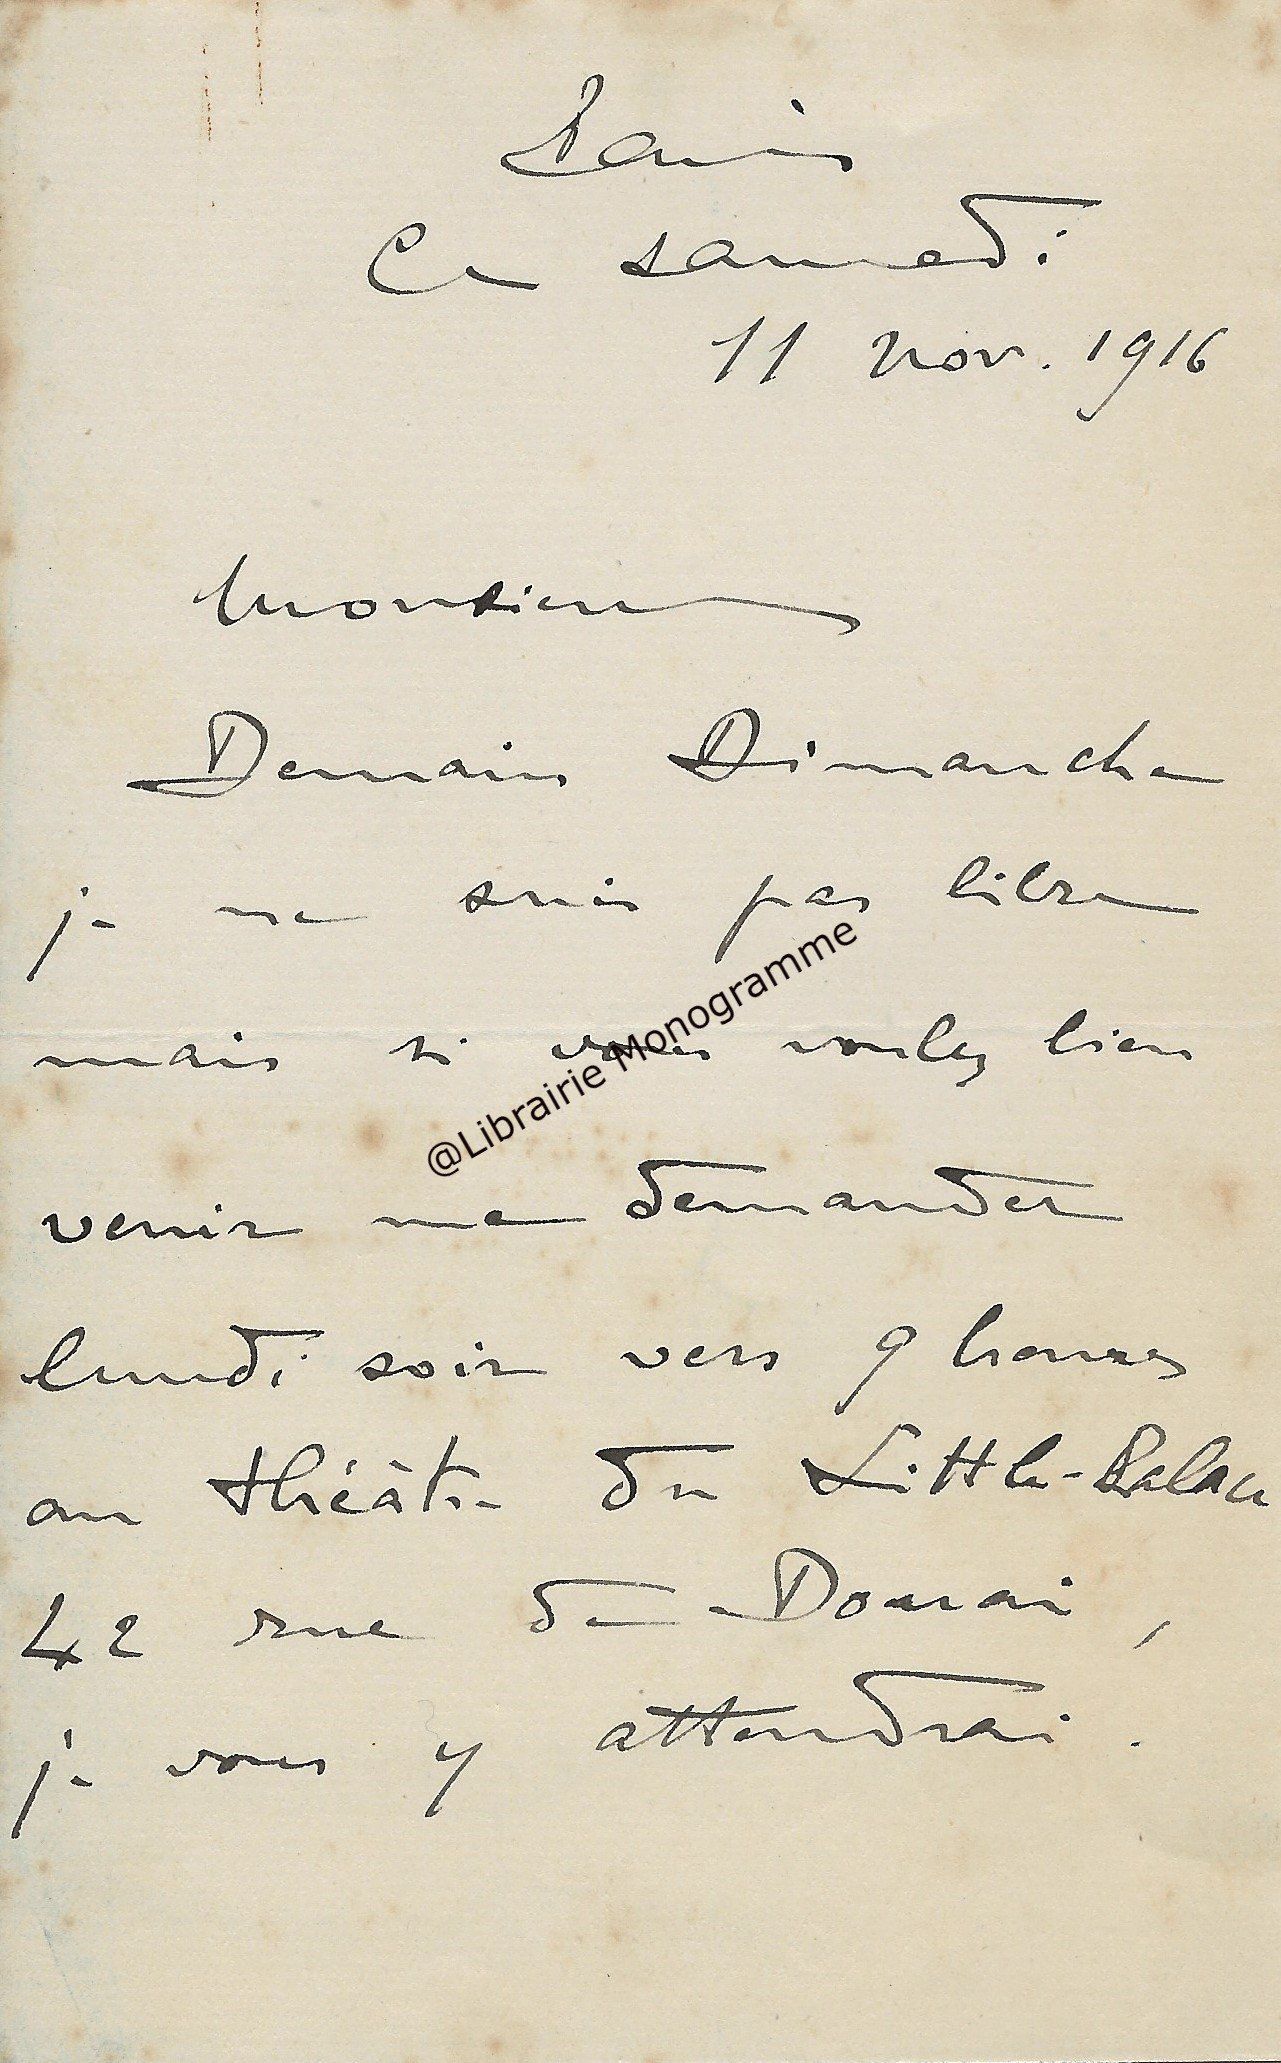 Paris
Ce samedi
11 nov. 1916
Monsieur
Demain Dimanche
je ne suis pas libre
mais si vous voulez bien
venir me demander
lundi soir vers 9 heures
au théâtre du Little-Palace
42 rue de Douai,
je vous y attendrai.
@Librairie Monogramme